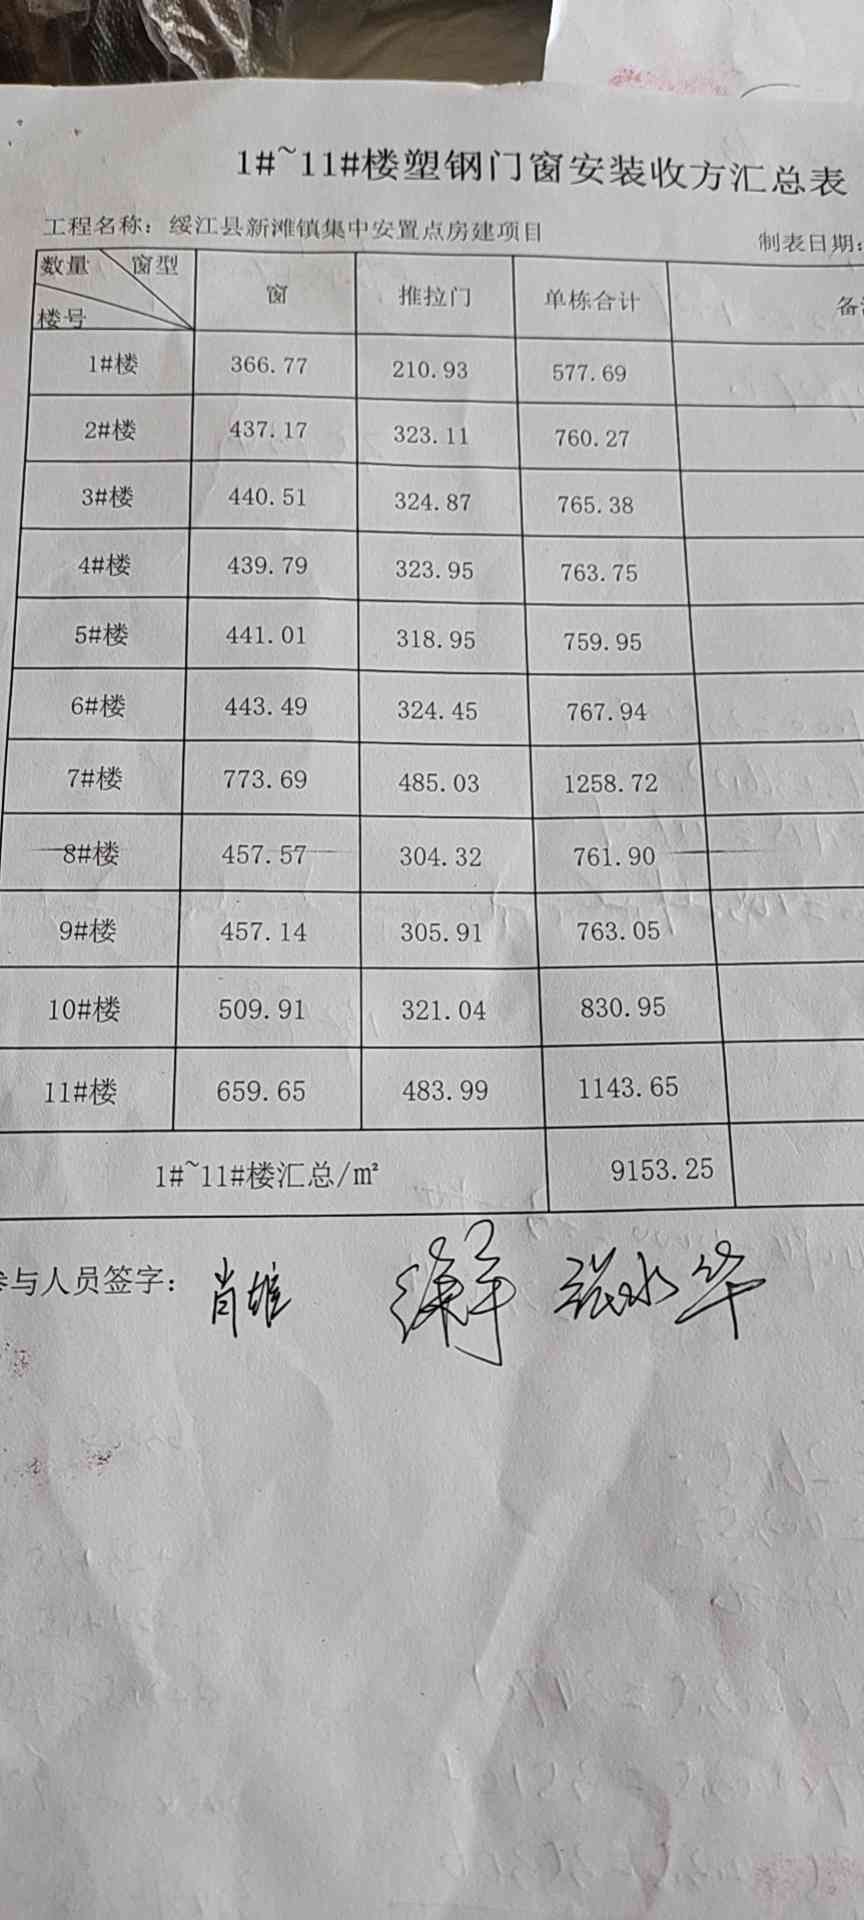 1#~11#楼塑钢门窗安装收方汇总表
工程名称：绥江县新滩镇集中安置点房建项目 制表日期：
数量 窗型 楼号 窗 推拉门 单栋合计 备
1#楼 366.77 210.93 577.69
2#楼 437.17 323.11 760.27
3#楼 440.51 324.87 765.38
4#楼 439.79 323.95 763.75
5#楼 441.01 318.95 759.95
6#楼 443.49 324.45 767.94
7#楼 773.69 485.03 1258.72
8#楼 457.57 304.32 761.90
9#楼 457.14 305.91 763.05
10#楼 509.91 321.04 830.95
11#楼 659.65 483.99 1143.65
1#~11#楼汇总/㎡ 9153.25
参与人员签字： 肖雄 张永华